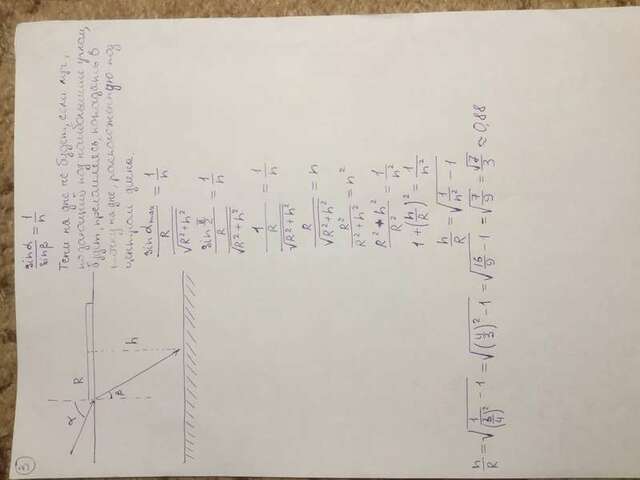 3
sinα/sinβ = 1/n
Тени на дне не будет, если луч,
подающий под наибольшим углом,
будет, преломляясь, попадать в
точку на дне, расположенную под
центром диска.
α R
β h
sinα_max / (R/√(R²+h²)) = 1/n
sin π/2 / (R/√(R²+h²)) = 1/n
1 / (R/√(R²+h²)) = 1/n
R/√(R²+h²) = n
R²/(R²+h²) = n²
(R²+h²)/R² = 1/n²
1+(h/R)² = 1/n²
h/R = √(1/n² − 1)
h/R = √(1/(3/4)² − 1) = √((4/3)² − 1) = √(16/9 − 1) = √(7/9) = √7/3 ≈ 0,88